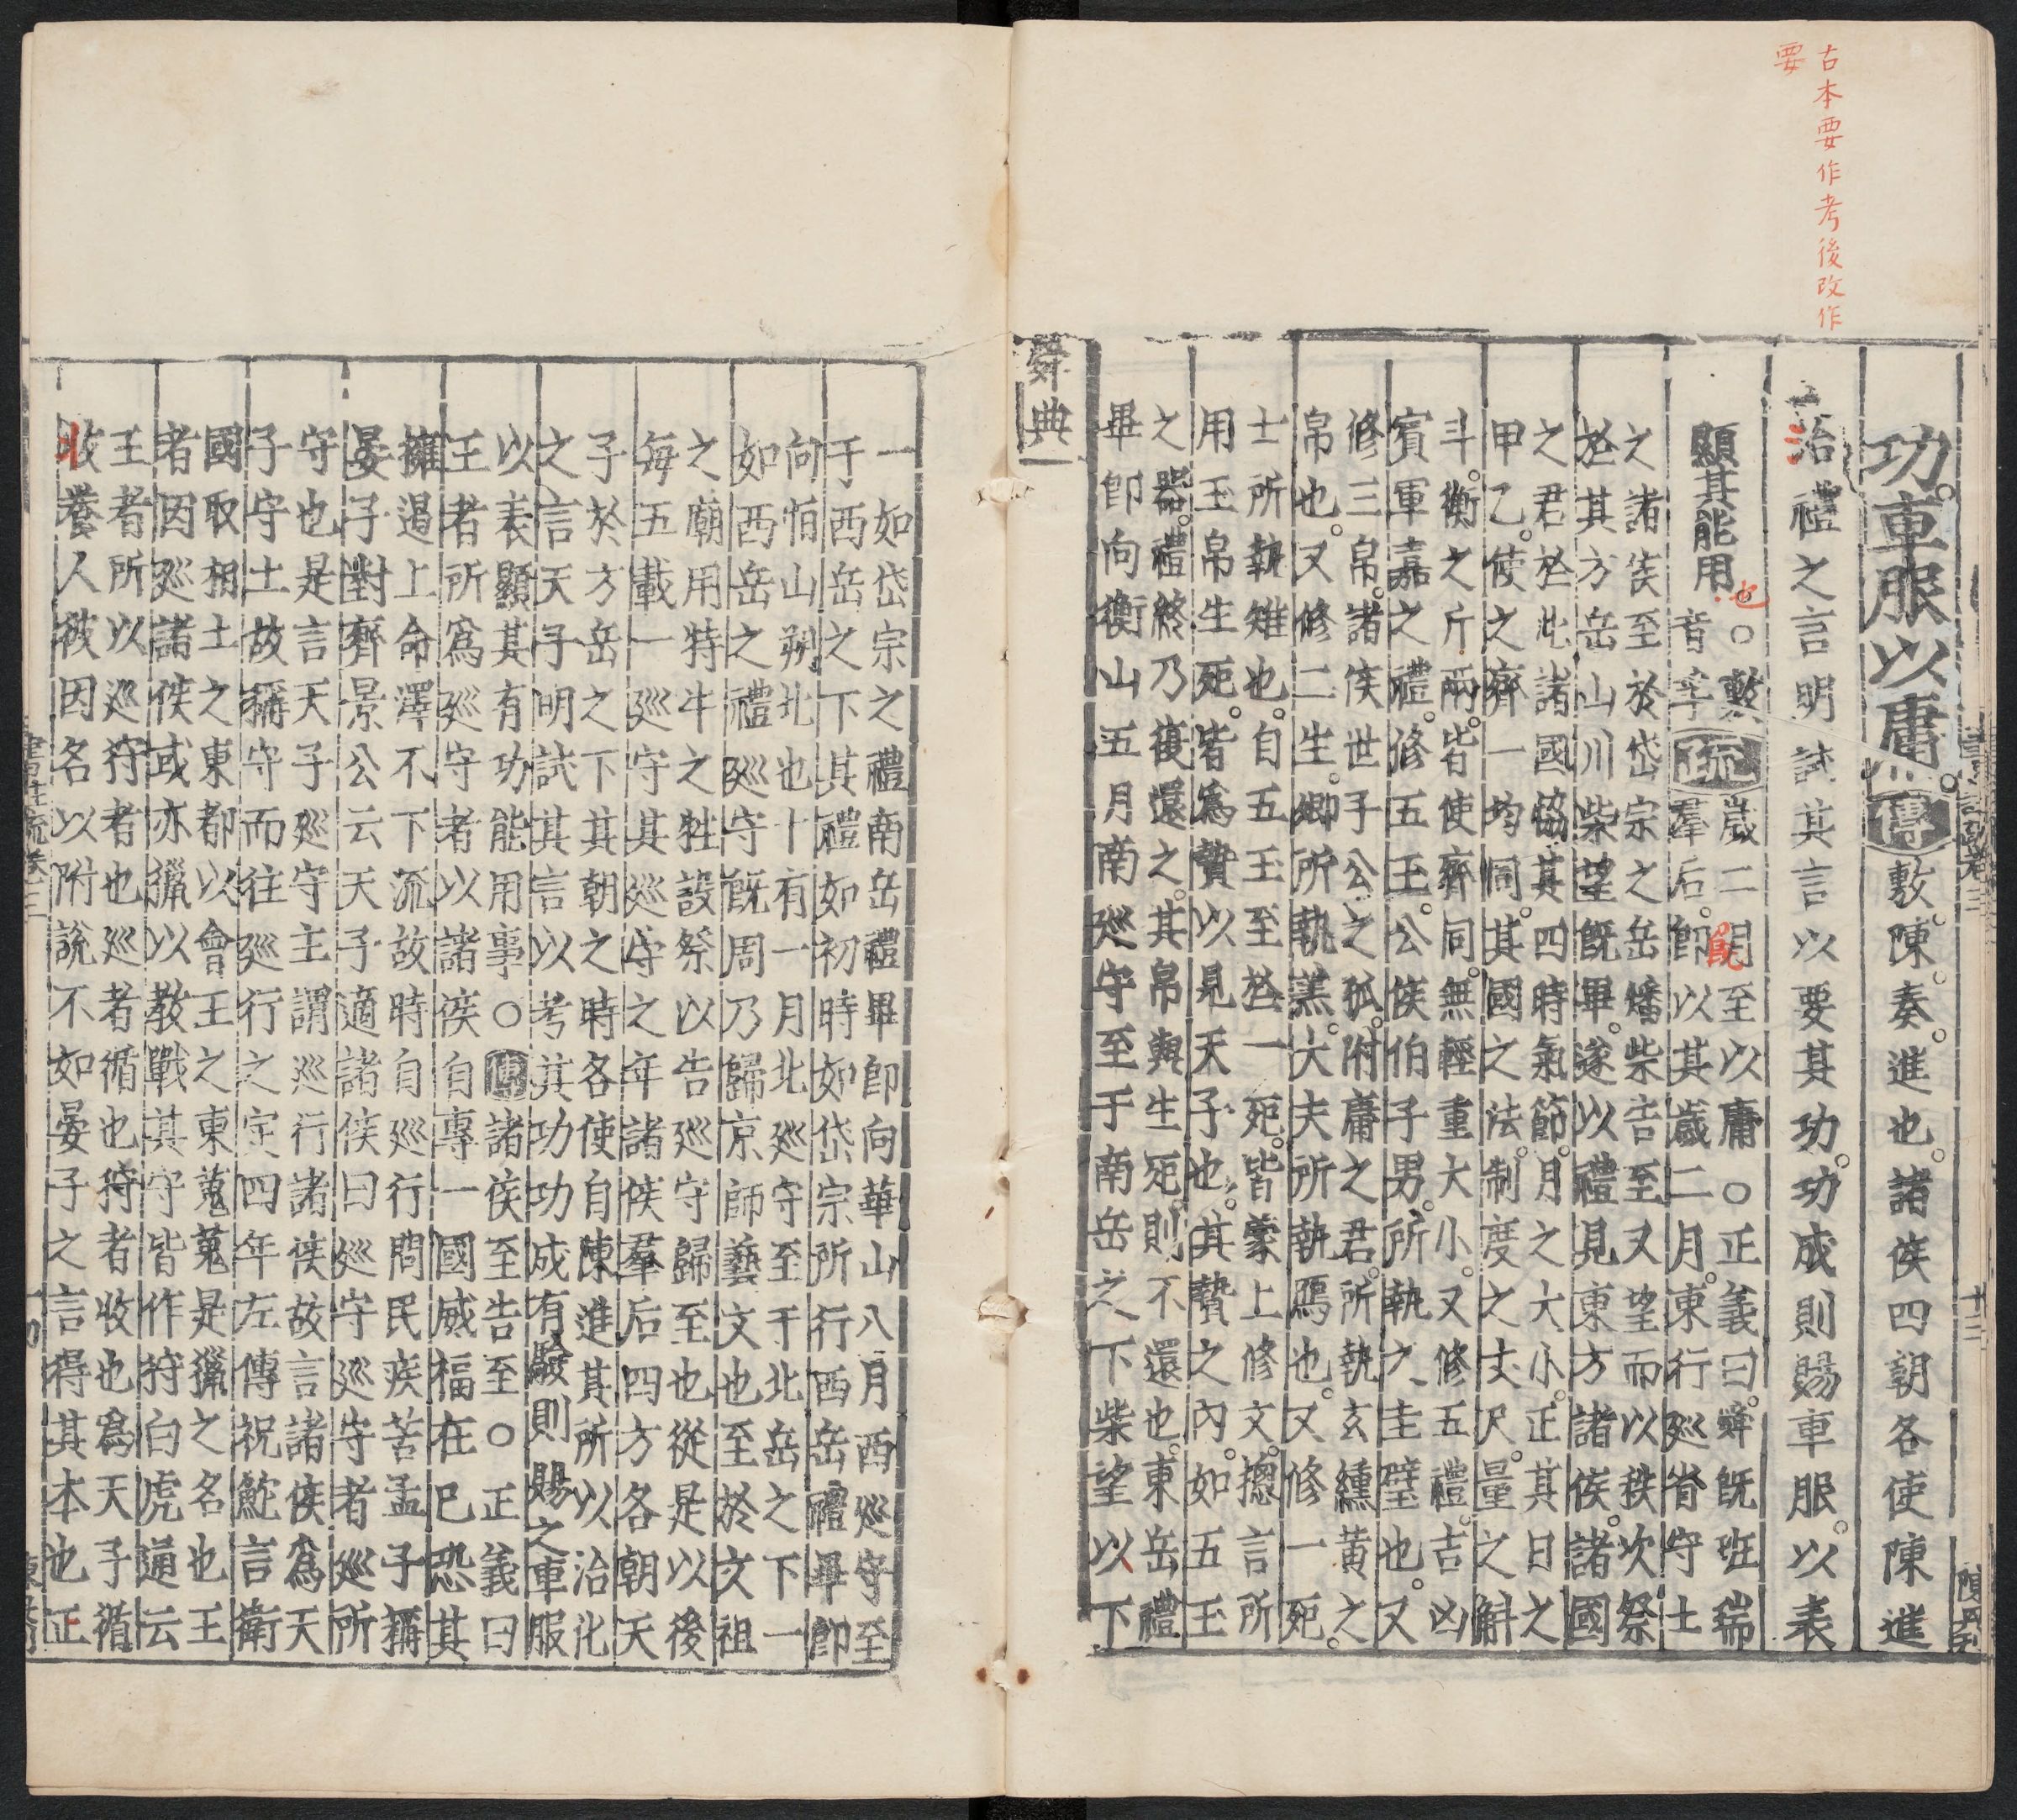 古本要作考後改作
要
功車服以庸傳敷陳奏進也諸侯四朝各使陳進
治禮之言明試其言以要其功功成則賜車服以表
顯其能用也○敷
音孚疏
歲二月至以庸○正義曰舜既班瑞
羣后即以其歲二月東行巡省守土
之諸侯至於岱宗之岳燔柴告至又望而以秩次祭
於其方岳山川柴望既畢遂以禮見東方諸侯諸國
之君於此諸國協其四時氣節月之大小正其日之
甲乙使之齊一均同其國之法制度之丈尺量之斛
斗衡之斤兩皆使齊同無輕重大小又修五禮吉凶
賓軍嘉之禮修五玉公侯伯子男所執之圭璧也又
修三帛諸侯世子公之孤附庸之君所執玄纁黃之
帛也又修二生卿所執羔大夫所執鴈也又修一死
士所執雉也自五玉至於一死皆蒙上修文摠言所
用玉帛生死皆為贄以見天子也其贄之內如五玉
之器禮終乃復還之其帛與生死則不還也東岳禮
畢即向衡山五月南巡守至于南岳之下柴望以下
舜典
一如岱宗之禮南岳禮畢即向華山八月西巡守至
于西岳之下其禮如初時如岱宗所行西岳禮畢即
向恒山朔北也十有一月北巡守至于北岳之下一
如西岳之禮巡守既周乃歸京師藝文也至於文祖
之廟用特牛之牲設祭以告巡守歸至也從是以後
每五載一巡守其巡守之年諸侯羣后四方各朝天
子於方岳之下其朝之時各使自陳進其所以治化
之言天子明試其言以考其功功成有驗則賜之車服
以表顯其有功能用事○傳諸侯至告至○正義曰
王者所為巡守者以諸侯自專一國威福在己恐其
擁遏上命澤不下流故時自巡行問民疾苦孟子稱
晏子對齊景公云天子適諸侯曰巡守巡守者巡所
守也是言天子巡守主謂巡行諸侯故言諸侯為天
子守土故稱守而往巡行之定四年左傳祝鮀言衛
國取相土之東都以會王之東蒐蒐是獵之名也王
者因巡諸侯或亦獵以教戰其守皆作狩白虎通云
王者所以巡狩者也巡者循也狩者收也為天子循
收養人彼因名以附說不如晏子之言得其本也正